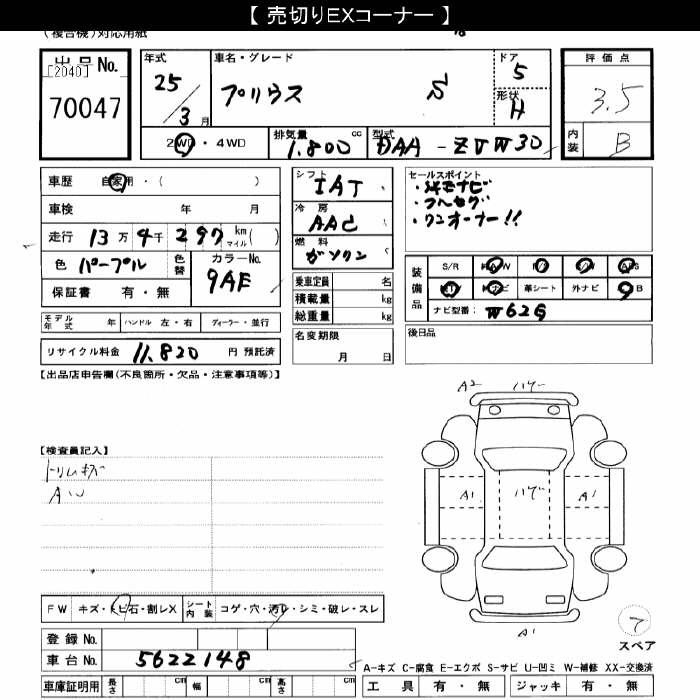 【 売切りEXコーナー 】
(複合機)対応用紙
出品No.
[2040]
70047
年式
25/3月
車名・グレード
プリウス S
ドア
5
形状
H
2WD・4WD
排気量 cc
1.800
型式
DAA-ZVW30
評価点
3.5
内装
B
車歴 自家用・( )
車検 年 月
走行 13万4千297 km マイル( )
色 パープル 色替 カラーNo. 9AE
保証書 有・無
シフト
IAT
冷房
AAC
燃料
ガソリン
乗車定員 名
積載量 kg
総重量 kg
セールスポイント
・純正ナビ
・フルセグ
・ワンオーナー!!
装備品
S/R 純A/W P/S P/W ABS
純TV 純ナビ 革シート 外ナビ SB
ナビ型番: W62G
モデル年式 年 ハンドル 左・右 ディーラー・並行
名変期限
月 日
後日品
リサイクル料金 11.820 円 預託済
【出品店申告欄(不良箇所・欠品・注意事項等)】
【検査員記入】
トリムキズ
AU
A2 ハゲー
A1 ハゲ A1
A1
FW キズ・トビ石・割レX シート内装 コゲ・穴・汚レ・シミ・破レ・スレ
登録No.
車台No. 5622148
スペア
A-キズ C-腐食 E-エクボ S-サビ U-凹ミ W-補修 XX-交換済
車庫証明用 長さ cm 幅 cm 高さ cm
工具 有・無 ジャッキ 有・無